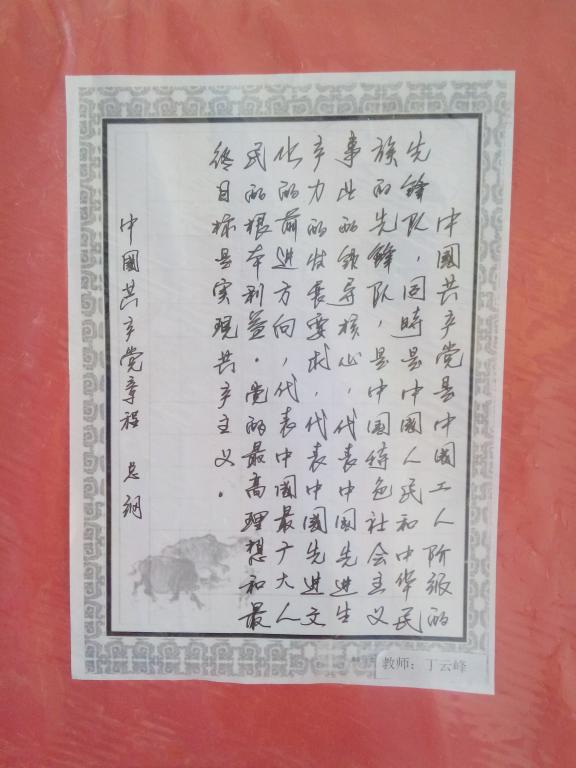 中國共产党是中國工人阶级的
先锋队，同時是中國人民和中华民
族的先鋒队，是中国特色社会主义
事业的领导核心，代表中国先进生
产力的发展要求，代表中國先进文
化的前进方向，代表中國最广大人
民的根本利益。党的最高理想和最
终目标是实现共产主义。
中國共产党章程 总纲
教师：丁云峰